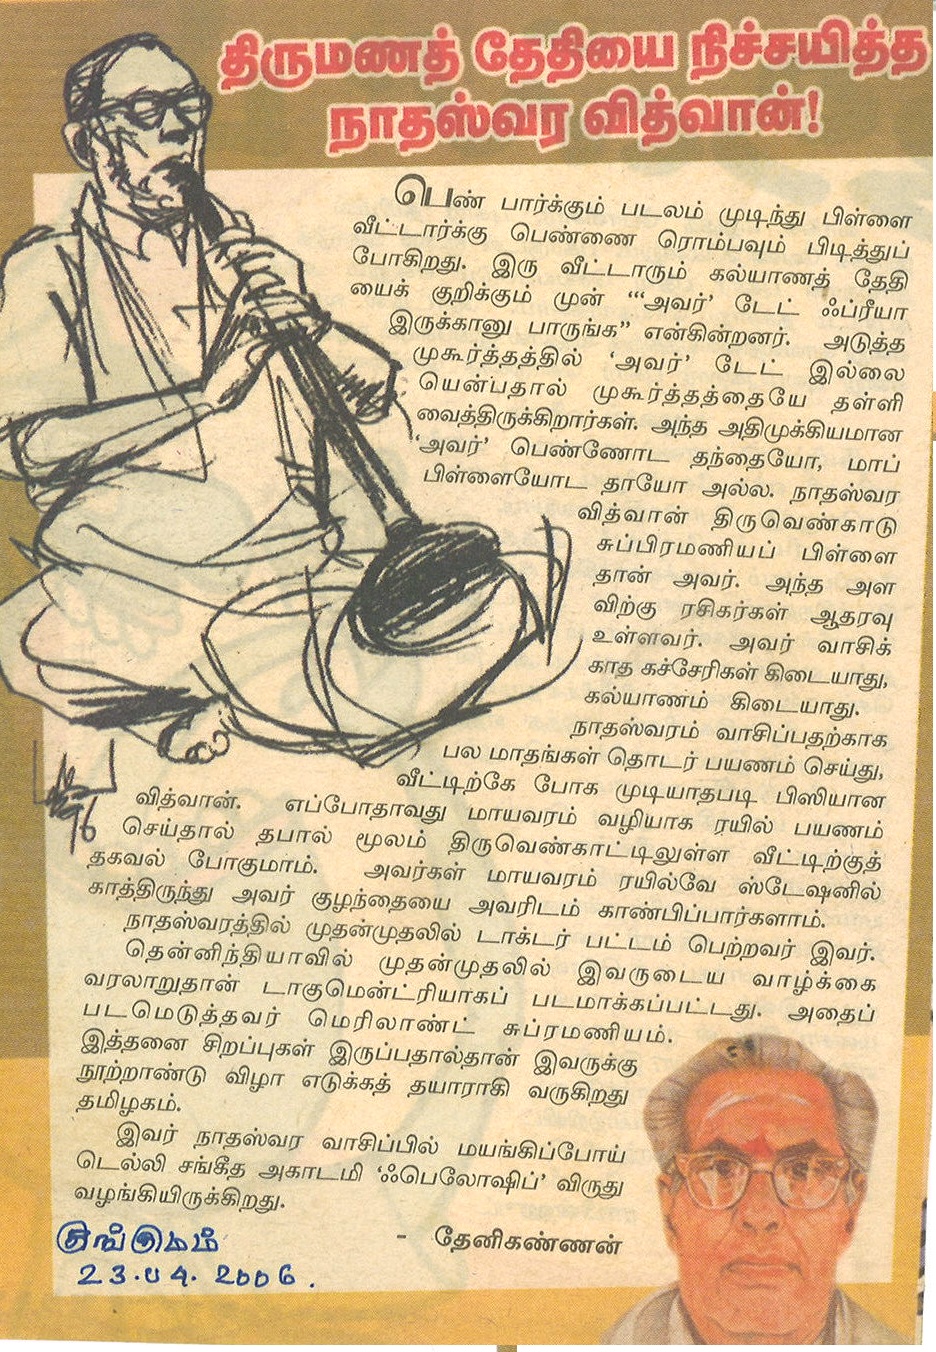 திருமணத் தேதியை நிச்சயித்த
நாதஸ்வர வித்வான்!
பெண் பார்க்கும் படலம் முடிந்து பிள்ளை
வீட்டார்க்கு பெண்ணை ரொம்பவும் பிடித்துப்
போகிறது. இரு வீட்டாரும் கல்யாணத் தேதி
யைக் குறிக்கும் முன் “‘அவர்’ டேட் ஃப்ரீயா
இருக்கானு பாருங்க” என்கின்றனர். அடுத்த
முகூர்த்தத்தில் ‘அவர்’ டேட் இல்லை
யென்பதால் முகூர்த்தத்தையே தள்ளி
வைத்திருக்கிறார்கள். அந்த அதிமுக்கியமான
‘அவர்’ பெண்ணோட தந்தையோ, மாப்
பிள்ளையோட தாயோ அல்ல. நாதஸ்வர
வித்வான் திருவெண்காடு
சுப்பிரமணியப் பிள்ளை
தான் அவர். அந்த அள
விற்கு ரசிகர்கள் ஆதரவு
உள்ளவர். அவர் வாசிக்
காத கச்சேரிகள் கிடையாது,
கல்யாணம் கிடையாது.
நாதஸ்வரம் வாசிப்பதற்காக
பல மாதங்கள் தொடர் பயணம் செய்து,
வீட்டிற்கே போக முடியாதபடி பிஸியான
வித்வான். எப்போதாவது மாயவரம் வழியாக ரயில் பயணம்
செய்தால் தபால் மூலம் திருவெண்காட்டிலுள்ள வீட்டிற்குத்
தகவல் போகுமாம். அவர்கள் மாயவரம் ரயில்வே ஸ்டேஷனில்
காத்திருந்து அவர் குழந்தையை அவரிடம் காண்பிப்பார்களாம்.
நாதஸ்வரத்தில் முதன்முதலில் டாக்டர் பட்டம் பெற்றவர் இவர்.
தென்னிந்தியாவில் முதன்முதலில் இவருடைய வாழ்க்கை
வரலாறுதான் டாகுமென்ட்ரியாகப் படமாக்கப்பட்டது. அதைப்
படமெடுத்தவர் மெரிலாண்ட் சுப்ரமணியம்.
இத்தனை சிறப்புகள் இருப்பதால்தான் இவருக்கு
நூற்றாண்டு விழா எடுக்கத் தயாராகி வருகிறது
தமிழகம்.
இவர் நாதஸ்வர வாசிப்பில் மயங்கிப்போய்
டெல்லி சங்கீத அகாடமி ‘ஃபெலோஷிப்’ விருது
வழங்கியிருக்கிறது.
- தேனிகண்ணன்
குங்குமம்
23.04.2006.